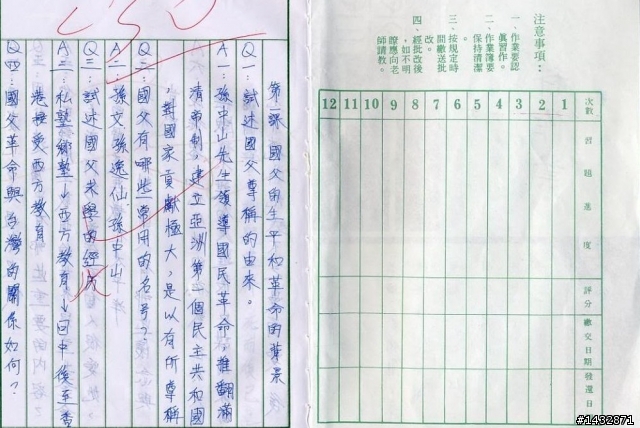 注意事項：
一、作業要認
真習作。
二、作業簿要
保持清潔
三、按規定時
間繳送批
改。
四、經批改後
，如不明
瞭應向老
師請教。
次數
習題進度
評分
繳交日期
發還日
1
2
3
4
5
6
7
8
9
10
11
12
第一課 國父的生平和革命的背景
Q一：試述國父尊稱的由來。
A一：孫中山先生領導國民革命，推翻滿
清帝制，建立亞洲第一個民主共和國
，對國家貢獻極大，是以有所尊稱
Q二：國父有哪些常用的名号？
A二：孫文 孫逸仙 孫中山
Q三：試述國父求學的經历
A三：私塾鄉塾↓西方教育↓回中後至香
港接受西方教育
Q四：國父革命與台灣的關係如何？
#1432871